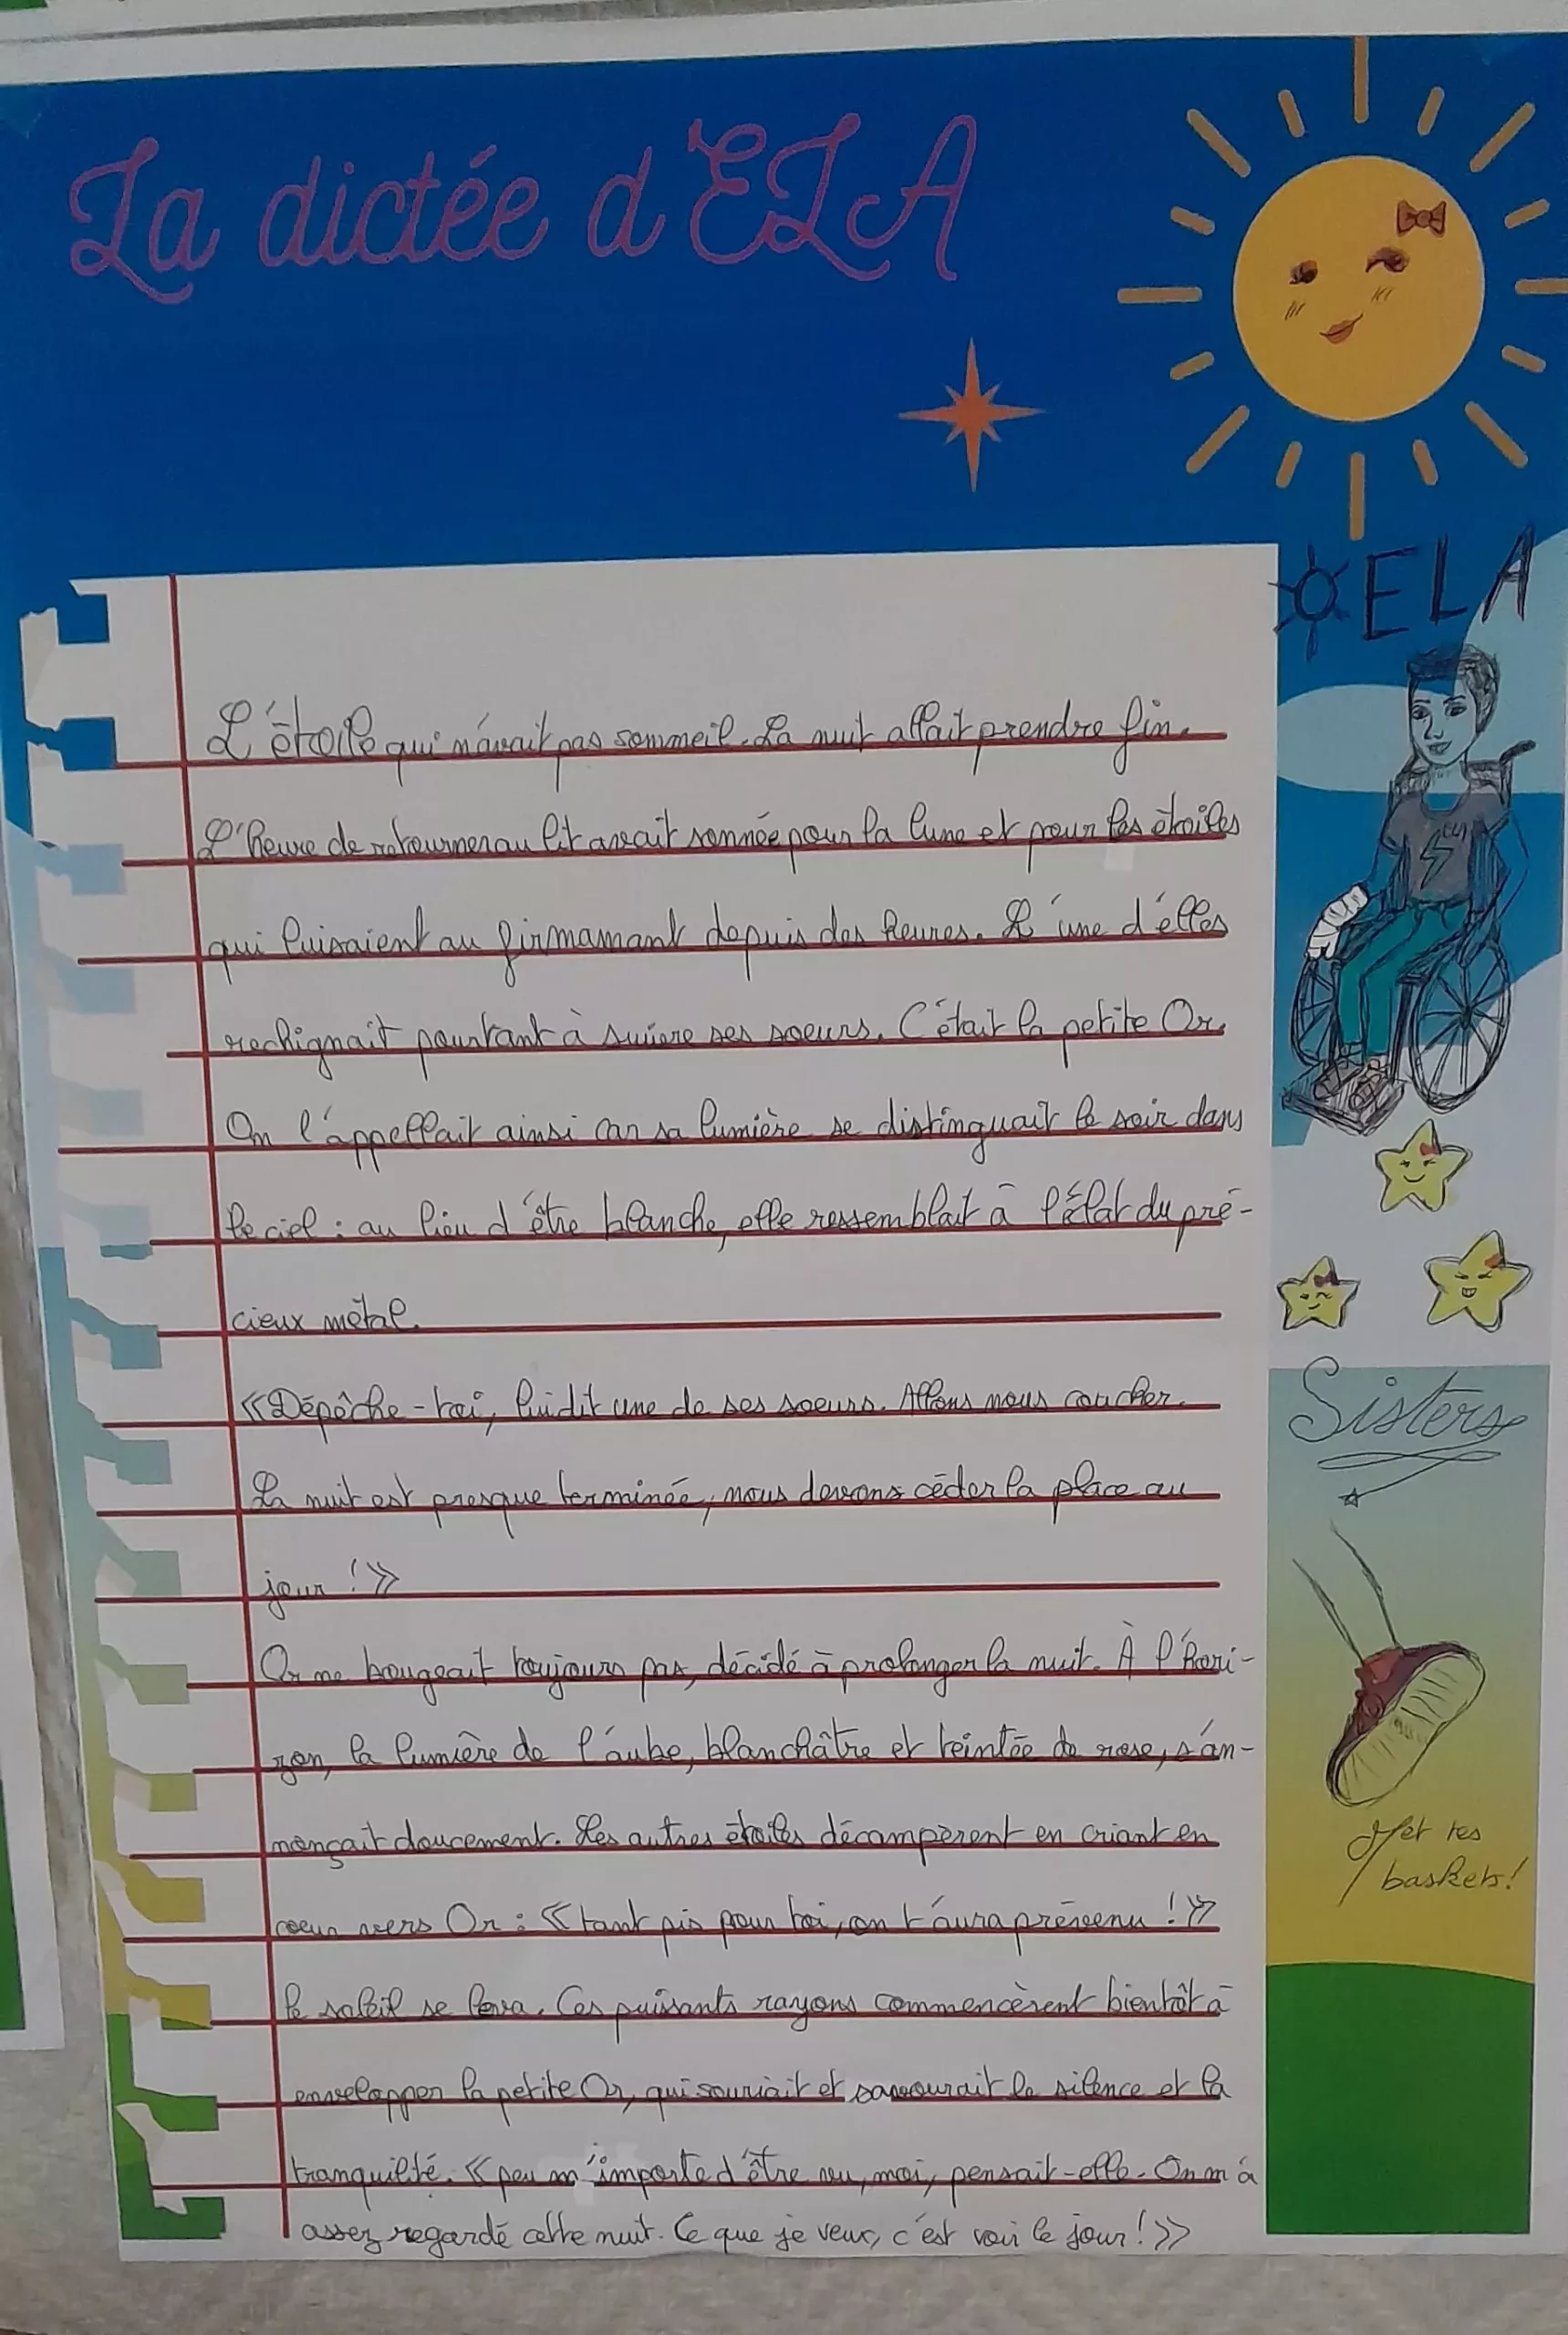 La dictée d'ELA
ELA
L'étoile qui n'avait pas sommeil. La nuit allait prendre fin.
L'heure de retourner au lit avait sonnée pour la lune et pour les étoiles
qui luisaient au firmamant depuis des heures. L'une d'elles
rechignait pourtant à suivre ses soeurs. C'était la petite Or.
On l'appellait ainsi car sa lumière se distinguait le soir dans
le ciel : au lieu d'être blanche, elle ressemblait à l'éclat du pré-
cieux métal.
«Dépêche-toi, lui dit une de ses soeurs. Allons nous coucher.
La nuit est presque terminée, nous devons céder la place au
jour !»
Or ne bougeait toujours pas, décidé à prolonger la nuit. À l'hori-
zon, la lumière de l'aube, blanchâtre et teintée de rose, s'an-
nonçait doucement. Les autres étoiles décampèrent en criant en
coeur vers Or : «tant pis pour toi, on t'aura prévenu !»
le soleil se leva. Ces puissants rayons commencèrent bientôt à
envelopper la petite Or, qui souriait et savourait le silence et la
tranquilité. «peu m'importe d'être vu, moi, pensait-elle. On m'a
assez regardé cette nuit. Ce que je veux, c'est voir le jour !»
Sisters
Met tes
baskets!